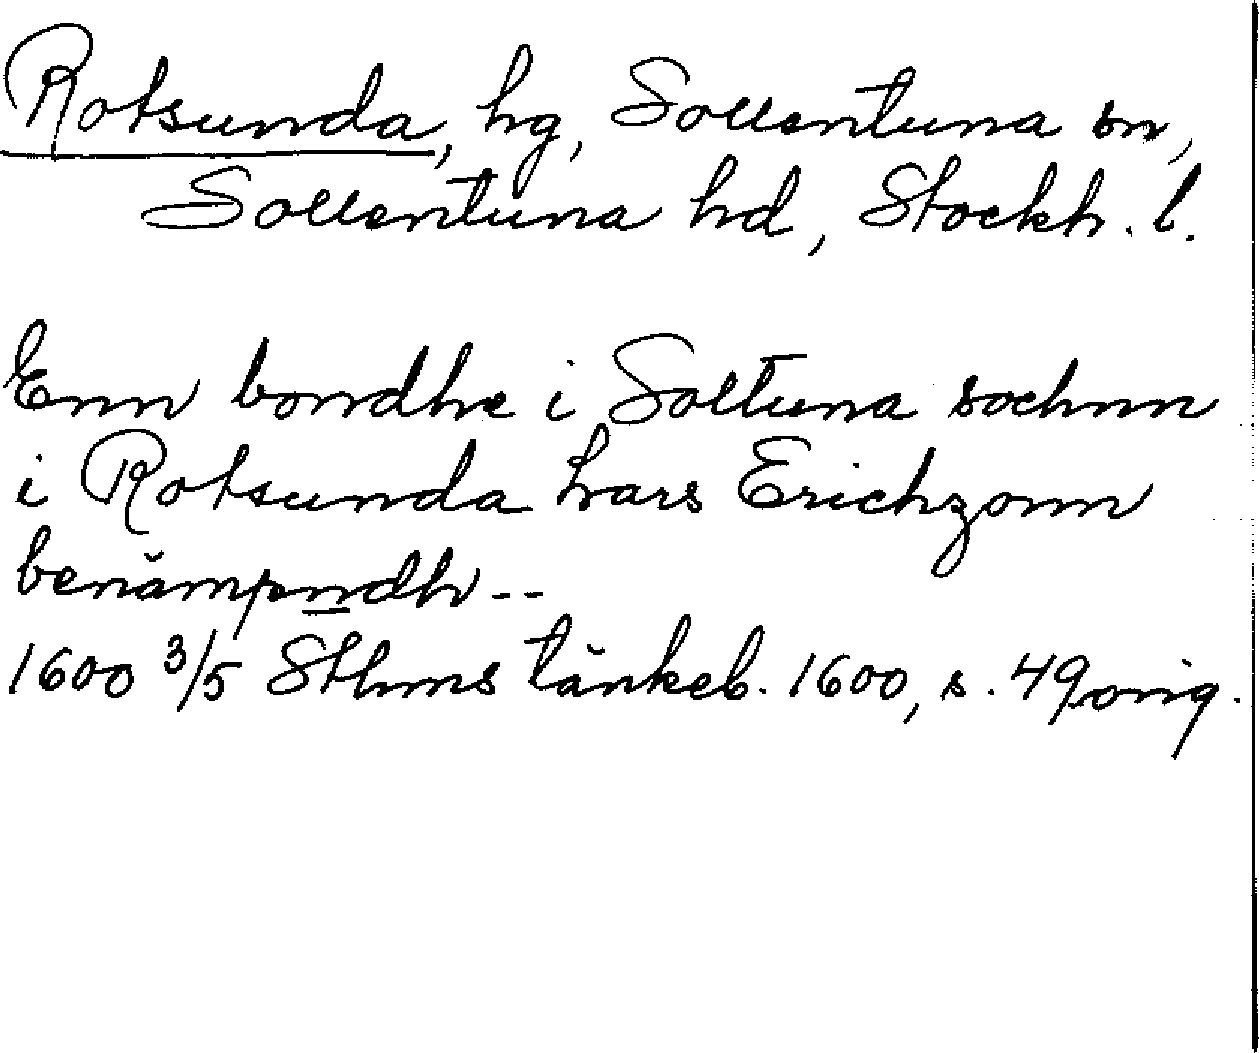 Rotsunda, hg, Sollentuna sn,
Sollentuna hd, Stockh. l.
Enn bondhe i Soltuna sochnn
i Rotsunda hars Erichzonn
benämpndh --
1600 3/5 Sthms tänkeb. 1600, s. 49 orig.